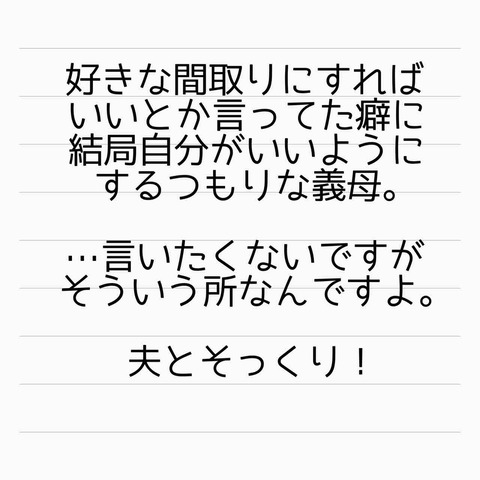 好きな間取りにすれば
いいとか言ってた癖に
結局自分がいいように
するつもりな義母。
…言いたくないですが
そういう所なんですよ。
夫とそっくり！